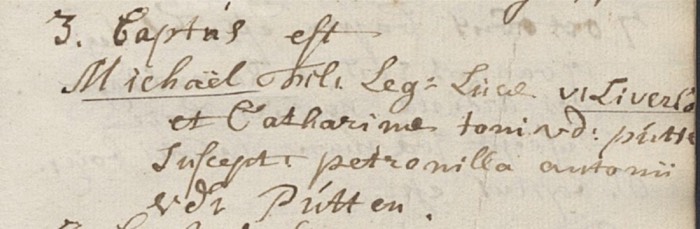 3. Baptús est
Michaël Fili Leg: Lucæ v: Liverlo
et Catharinæ toni vd: pútte
Suscept: petronilla antonii
vdr Pútten.